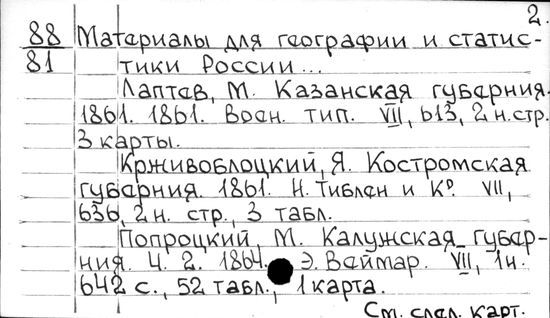 2.
88 Материалы для географии и статис-
81 тики России...
Лаптев, М. Казанская губерния.
1861. 1861. Воен. тип. VII, 613, 2 н. стр.
3 карты.
Крживоблоцкий, Я. Костромская
губерния. 1861. Н. Тиблен и К⁰. VII,
636, 2 н. стр., 3 табл.
Попроцкий, М. Калужская губер-
ния. Ч. 2. 1864. Э. Веймар. VII, 1 н.
642 с., 52 табл., 1 карта.
См. след. карт.